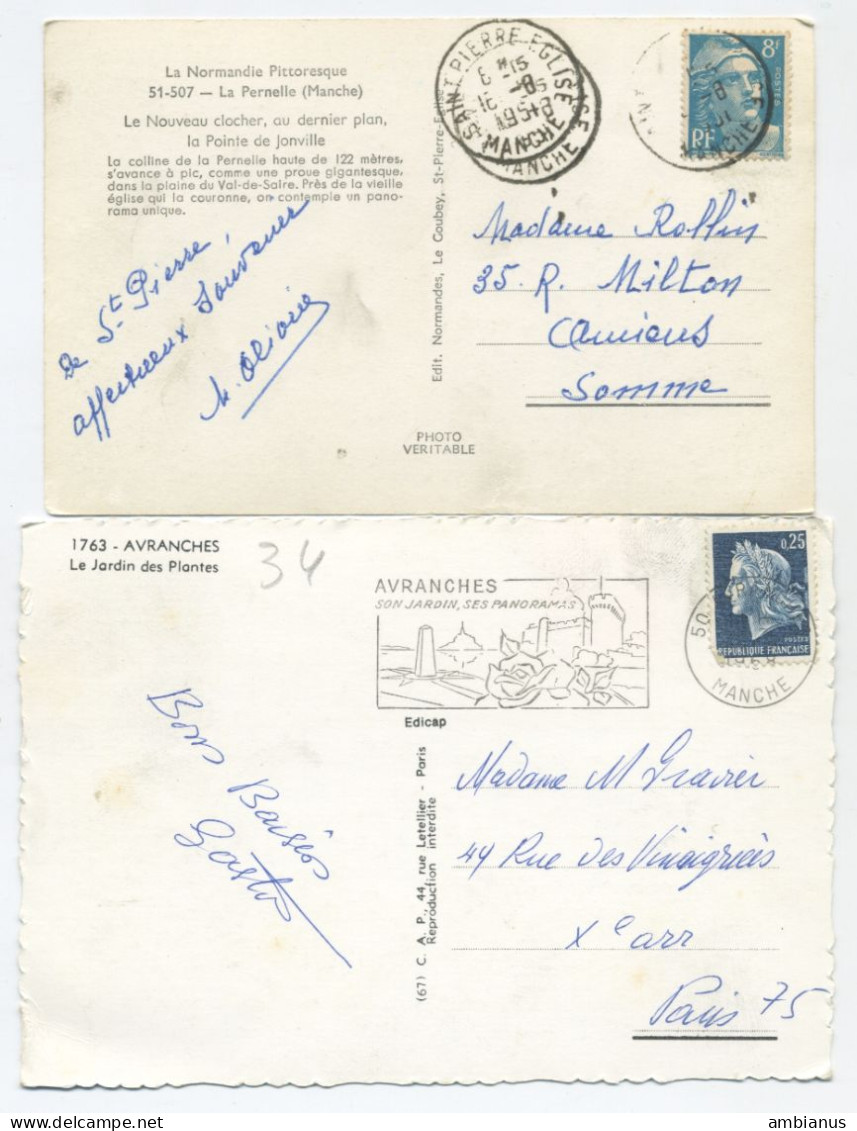 La Normandie Pittoresque
51-507 — La Pernelle (Manche)
Le Nouveau clocher, au dernier plan,
la Pointe de Jonville
La colline de la Pernelle haute de 122 mètres,
s'avance à pic, comme une proue gigantesque,
dans la plaine du Val-de-Saire. Près de la vieille
église qui la couronne, on contemple un pano-
rama unique.
De St Pierre,
affectueux Souvenir
PHOTO
VERITABLE
Edit. Normandes, Le Goubey, St-Pierre-Eglise
SAINT PIERRE EGLISE
MANCHE
MANCHE
8F
POSTES
RF
MANCHE
Madame Rollin
35. R. Milton
Amiens
Somme
1763 - AVRANCHES
Le Jardin des Plantes
34
AVRANCHES
SON JARDIN, SES PANORAMAS
0,25
POSTES
REPUBLIQUE FRANÇAISE
50
MANCHE
Edicap
Bons Baisers
(67) C. A. P., 44, rue Letellier - Paris
Reproduction interdite
Madame M Gravier
44 Rue des Vinaigriers
Xe arr
Paris 75
www.delcampe.net
ambianus